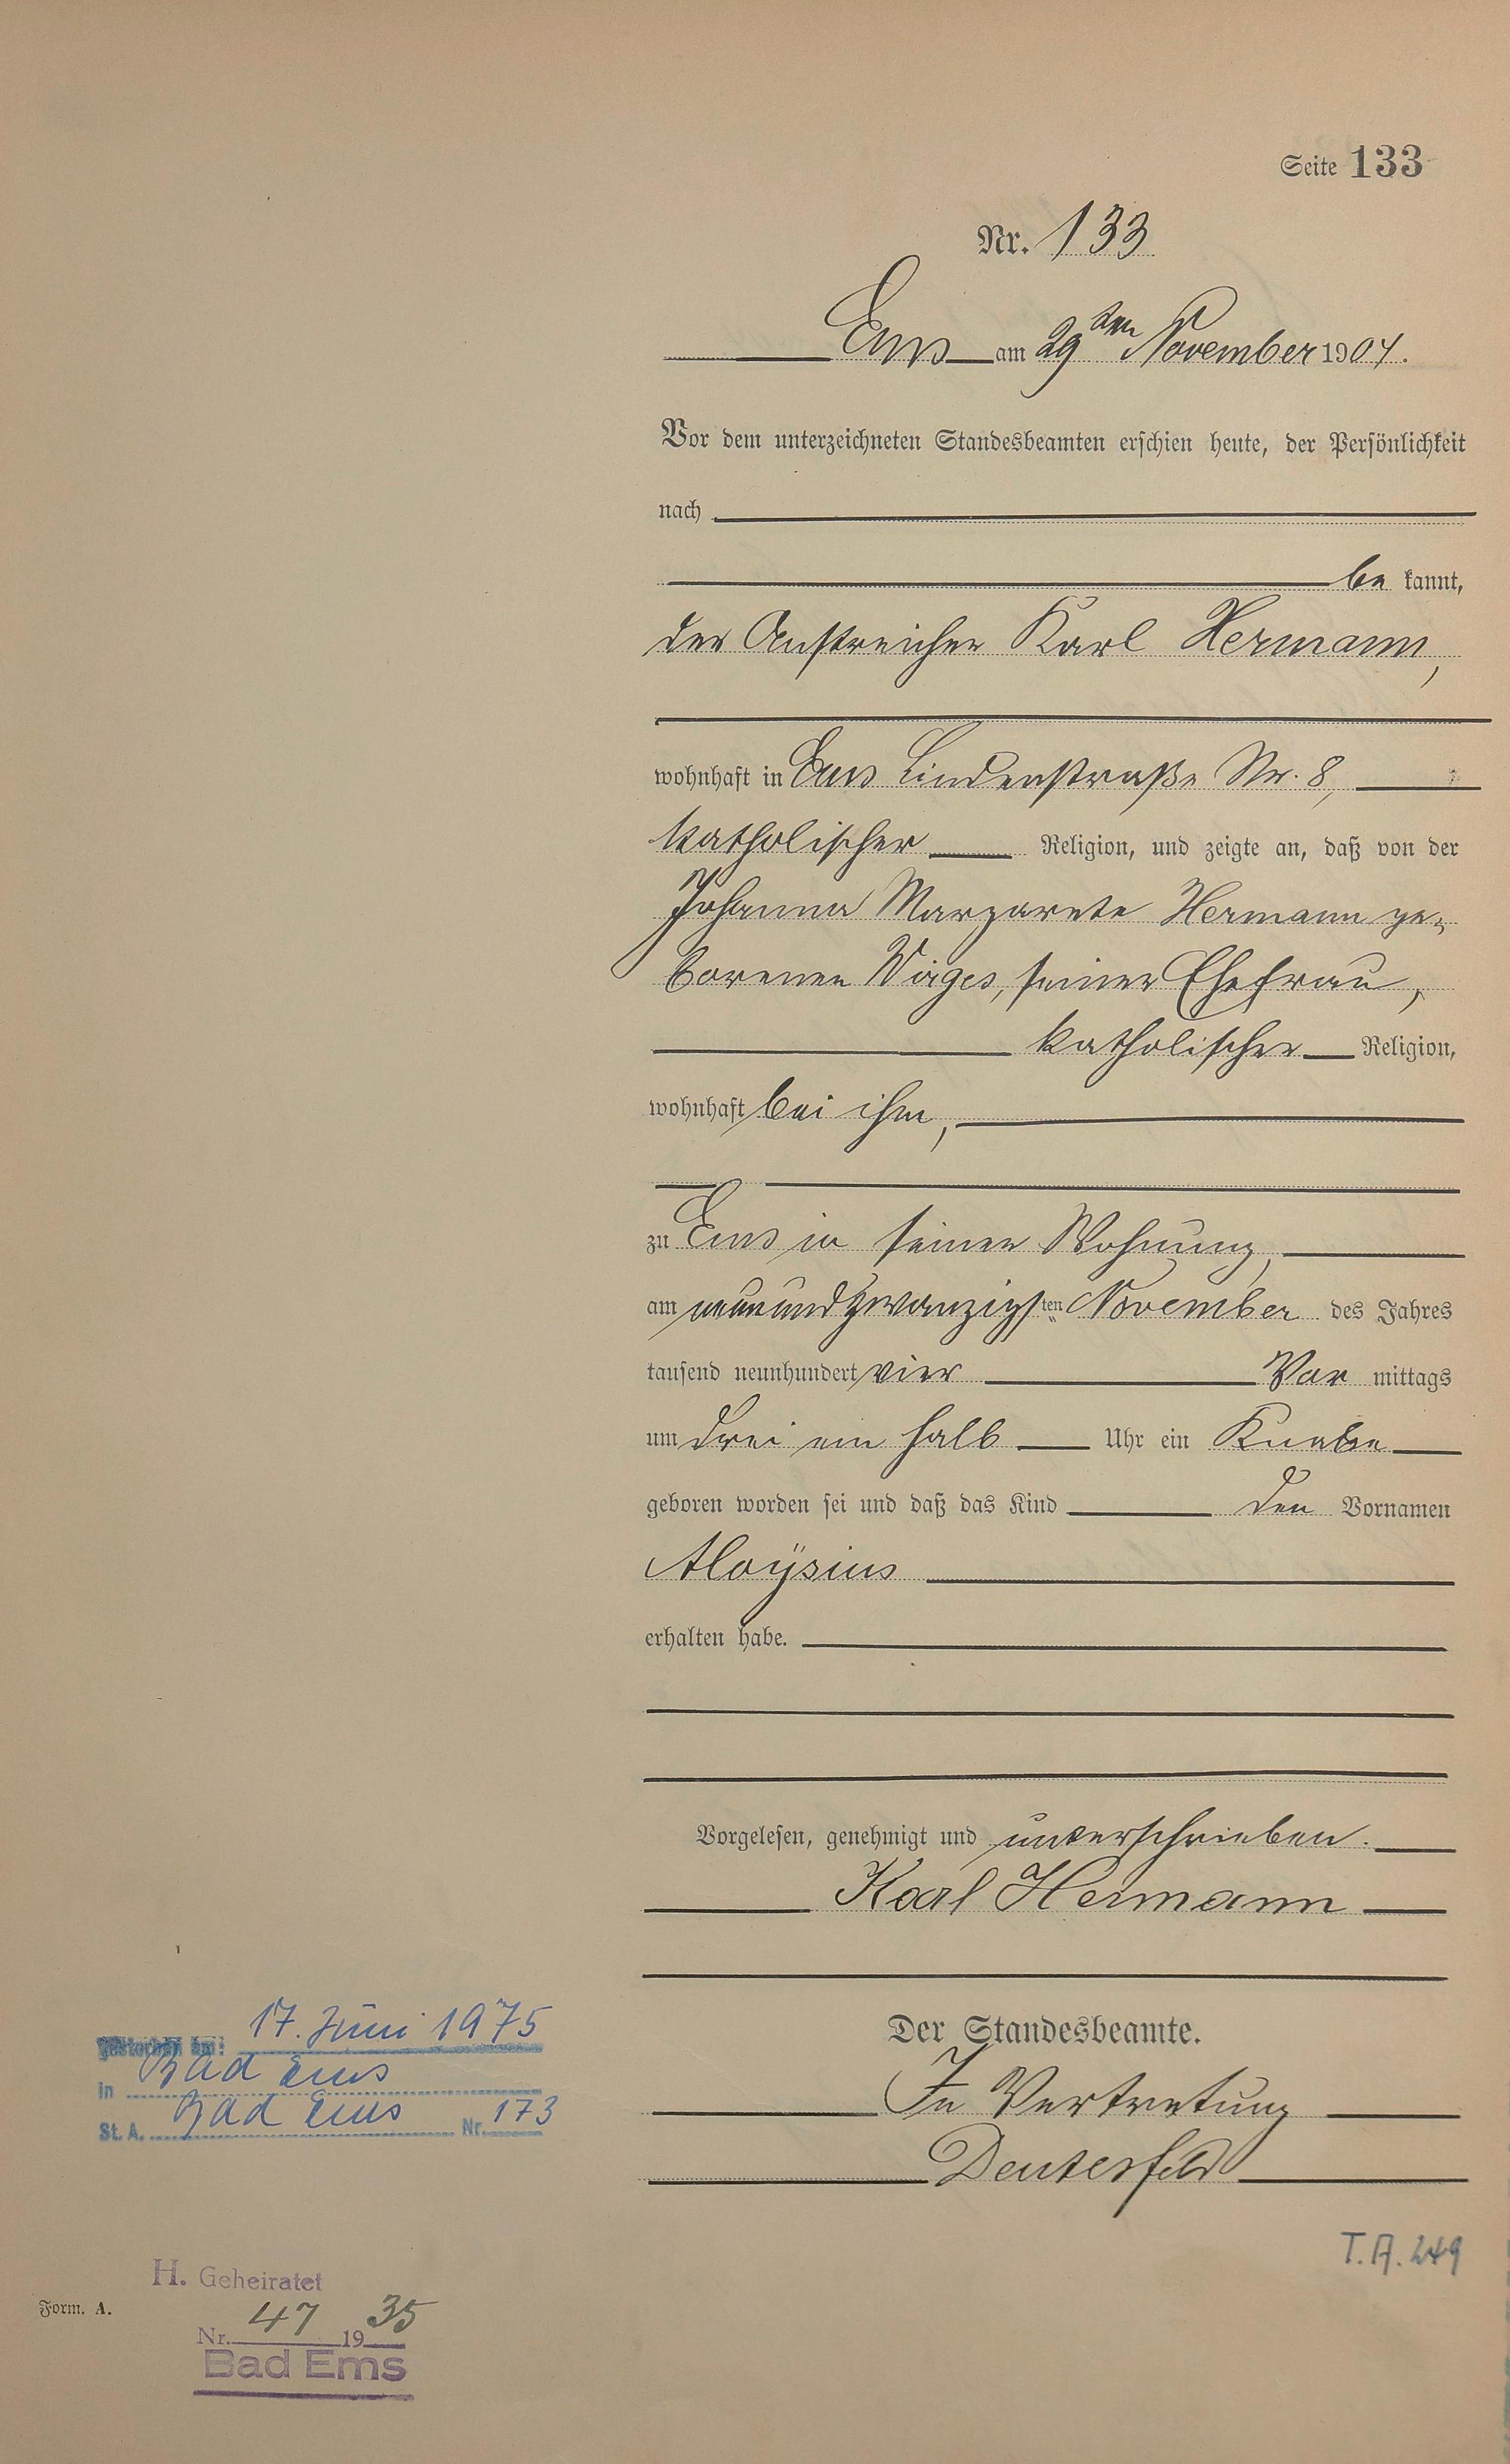 Seite 133
Nr. 133
Ems am 29ten November 1904.
Vor dem unterzeichneten Standesbeamten erschien heute, der Persönlichkeit
nach
be kannt,
der Anstreicher Karl Hermann,
wohnhaft in Ems Lindenstraße Nr. 8,
katholischer Religion, und zeigte an, daß von der
Johanna Margarete Hermann ge-
borenen Wirges, seiner Ehefrau,
katholischer Religion,
wohnhaft bei ihm,
zu Ems in seiner Wohnung,
am neunundzwanzigsten November des Jahres
tausend neunhundert vier Vor mittags
um drei ein halb Uhr ein Knabe
geboren worden sei und daß das Kind den Vornamen
Aloÿsius
erhalten habe.
Vorgelesen, genehmigt und unterschrieben.
Karl Hermann
Der Standesbeamte.
In Vertretung
Deutesfeld
T.A. 249
gestorben am: 17. Juni 1975
in Bad Ems
St. A. Bad Ems Nr. 173
H. Geheiratet
Nr. 47 1935
Bad Ems
Form. A.